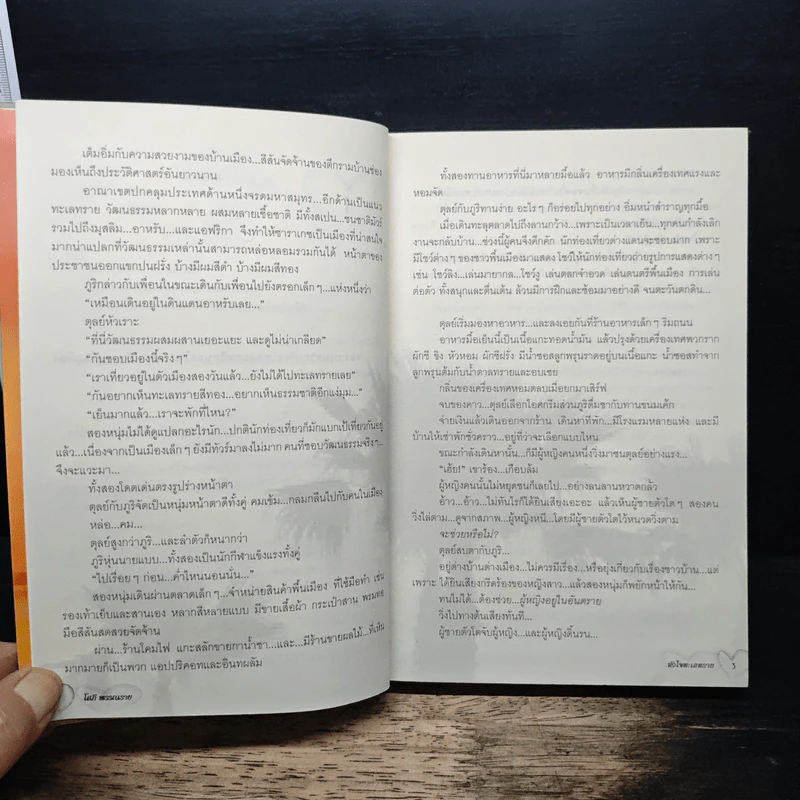 เต็มอิ่มกับความสวยงามของบ้านเมือง...สีสันจัดจ้านของตึกรามบ้านช่อง
มองเห็นถึงประวัติศาสตร์อันยาวนาน
อาณาเขตปกคลุมประเทศด้านหนึ่งจรดมหาสมุทร...อีกด้านเป็นแนว
ทะเลทราย วัฒนธรรมหลากหลาย ผสมหลายเชื้อชาติ มีทั้งสเปน...ชนชาติมัวร์
รวมไปถึงมุสลิม...อาหรับ...และแอฟริกา จึงทำให้ซาราเกซเป็นเมืองที่น่าสนใจ
มากน่าแปลกที่วัฒนธรรมเหล่านั้นสามารถหล่อหลอมรวมกันได้ หน้าตาของ
ประชาชนออกแขกปนฝรั่ง บ้างมีผมสีดำ บ้างมีผมสีทอง
ภูริกล่าวกับเพื่อนในขณะเดินกับเพื่อนไปยังตรอกเล็กๆ...แห่งหนึ่งว่า
“เหมือนเดินอยู่ในดินแดนอาหรับเลย...”
ตุลย์หัวเราะ
“ที่นี่วัฒนธรรมผสมผสานเยอะแยะ และดูไม่น่าเกลียด”
“กันชอบเมืองนี้จริงๆ”
“เราเที่ยวอยู่ในตัวเมืองสองวันแล้ว...ยังไม่ได้ไปทะเลทรายเลย”
“กันอยากเห็นทะเลทรายสีทอง...อยากเห็นธรรมชาติอีกแง่มุม...”
“เย็นมากแล้ว...เราจะพักที่ไหน?”
สองหนุ่มไม่ได้ดูแปลกอะไรนัก...ปกตินักท่องเที่ยวก็มักแบกเป้เที่ยวกันอยู่
แล้ว...เนื่องจากเป็นเมืองเล็กๆ ยังมีทัวร์มาลงไม่มาก คนที่ชอบวัฒนธรรมจริงๆ...
จึงจะแวะมา...
ทั้งสองโดดเด่นตรงรูปร่างหน้าตา
ตุลย์กับภูริจัดเป็นหนุ่มหน้าตาดีทั้งคู่ คมเข้ม...กลมกลืนไปกับคนในเมือง
หล่อ...คม...
ตุลย์สูงกว่าภูริ...และลำตัวก็หนากว่า
ภูริหุ่นนายแบบ...ทั้งสองเป็นนักกีฬาแข็งแรงทั้งคู่
“ไปเรื่อยๆ ก่อน...ค่ำไหนนอนนั่น...”
สองหนุ่มเดินผ่านตลาดเล็กๆ...จำหน่ายสินค้าพื้นเมือง ที่ใช้มือทำ เช่น
รองเท้าเย็บและสานเอง หลากสีหลายแบบ มีขายเสื้อผ้า กระเป๋าสาน พรมทอ
มือสีสันสดสวยจัดจ้าน
ผ่าน...ร้านโคมไฟ แกะสลักขายกาน้ำชา...และ...มีร้านขายผลไม้...ที่เห็น
มากมายก็เป็นพวก แอปปริคอทและอินทผลัม
โสภี พรรณราย
ทั้งสองทานอาหารที่นี่มาหลายมื้อแล้ว อาหารมีกลิ่นเครื่องเทศแรงและ
หอมจัด
ตุลย์กับภูริทานง่าย อะไรๆ ก็อร่อยไปทุกอย่าง อิ่มหนำสำราญทุกมื้อ
เมื่อเดินทะลุตลาดไปถึงลานกว้าง...เพราะเป็นเวลาเย็น...ทุกคนกำลังเลิก
งานจะกลับบ้าน...ช่วงนี้ผู้คนจึงคึกคัก นักท่องเที่ยวต่างแดนจะชอบมาก เพราะ
มีโชว์ต่างๆ ของชาวพื้นเมืองมาแสดง โชว์ให้นักท่องเที่ยวถ่ายรูปการแสดงต่างๆ
เช่น โชว์ลิง...เล่นมายากล...โชว์งู เล่นตลกจำอวด เล่นดนตรีพื้นเมือง การเล่น
ต่อตัว ทั้งสนุกและตื่นเต้น ล้วนมีการฝึกและซ้อมมาอย่างดี จนตะวันตกดิน...
ตุลย์เริ่มมองหาอาหาร...และลงเอยกันที่ร้านอาหารเล็กๆ ริมถนน
อาหารมื้อเย็นนี้เป็นเนื้อแกะทอดน้ำมัน แล้วปรุงด้วยเครื่องเทศพวกราก
ผักชี ขิง หัวหอม ผักชีฝรั่ง มีน้ำซอสลูกพรุนราดอยู่บนเนื้อแกะ น้ำซอสทำจาก
ลูกพรุนต้มกับน้ำตาลทรายและอบเชย
กลิ่นของเครื่องเทศหอมตลบเมื่อยกมาเสิร์ฟ
จบของคาว...ตุลย์เลือกไอศกรีมส่วนภูริดื่มชากับทานขนมเค้ก
จ่ายเงินแล้วเดินออกจากร้าน เดินหาที่พัก...มีโรงแรมหลายแห่ง และมี
บ้านให้เช่าพักชั่วคราว...อยู่ที่ว่าจะเลือกแบบไหน
ขณะกำลังเดินหานั้น...ก็มีผู้หญิงคนหนึ่งวิ่งมาชนตุลย์อย่างแรง...
“เฮ้ย!” เขาร้อง...เกือบล้ม
ผู้หญิงคนนั้นไม่หยุดชนก็เลยไป...อย่างลนลานหวาดกลัว
อ้าว...อ้าว...ไม่ทันไรก็ได้ยินเสียงเอะอะ แล้วเห็นผู้ชายตัวโตๆ สองคน
วิ่งไล่ตาม...ดูจากสภาพ...ผู้หญิงหนี...โดยมีผู้ชายตัวโตไว้หนวดวิ่งตาม
จะช่วยหรือไม่?
ตุลย์สบตากับภูริ...
อยู่ต่างบ้านต่างเมือง...ไม่ควรมีเรื่อง...หรือยุ่งเกี่ยวกับเรื่องชาวบ้าน...แต่
เพราะ ได้ยินเสียงกรีดร้องของหญิงสาว...แล้วสองหนุ่มก็พยักหน้าให้กัน...
ทนไม่ได้...ต้องช่วย...ผู้หญิงอยู่ในอันตราย
วิ่งไปทางต้นเสียงทันที...
ผู้ชายตัวโตจับผู้หญิง...และผู้หญิงดิ้นรน...
หัวใจทะเลทราย 3